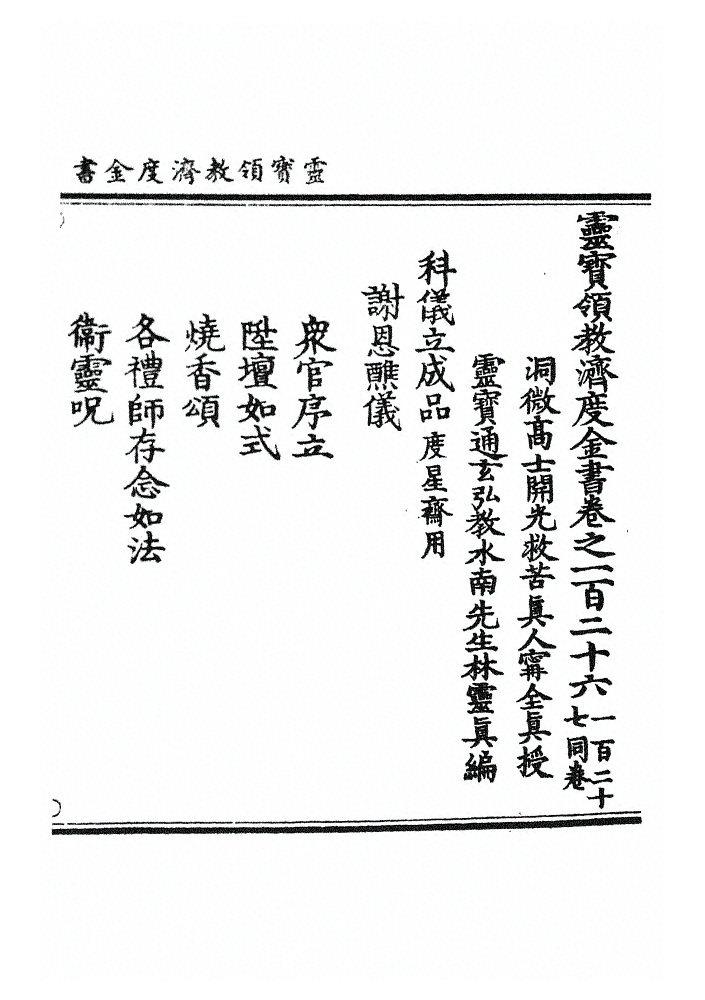 靈寳領教濟度金書
靈寳領教濟度金書卷之一百二十六一百二十七同卷
洞微高士開光救苦眞人甯全眞授
靈寳通玄弘教水南先生林靈眞編
科儀立成品度星齋用
謝恩醮儀
衆官序立
陞壇如式
燒香頌
各禮師存念如法
衞靈呪